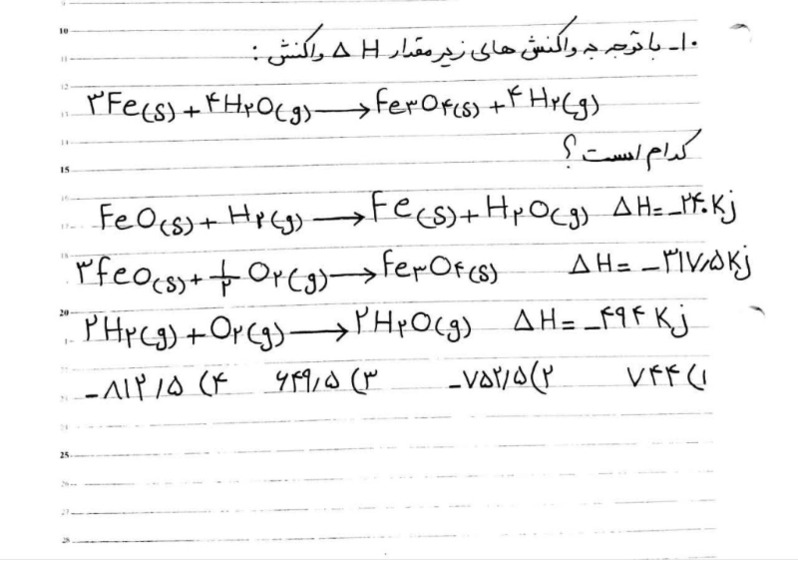 ۱۰- با توجه به واکنش های زیر مقدار ΔH واکنش :
۳Fe(s) + ۴H۲O(g) → Fe۳O۴(s) + ۴H۲(g)
کدام است ؟
FeO(s) + H۲(g) → Fe(s) + H۲O(g) ΔH = -۲۴۰ Kj
۳feO(s) + ۱/۲ O۲(g) → Fe۳O۴(s) ΔH = -۳۱۷٫۵ Kj
۲H۲(g) + O۲(g) → ۲H۲O(g) ΔH = -۴۹۴ Kj
۱) ۷۴۴ ۲) -۷۵۲/۵ ۳) ۶۴۹/۵ ۴) -۸۱۲/۵